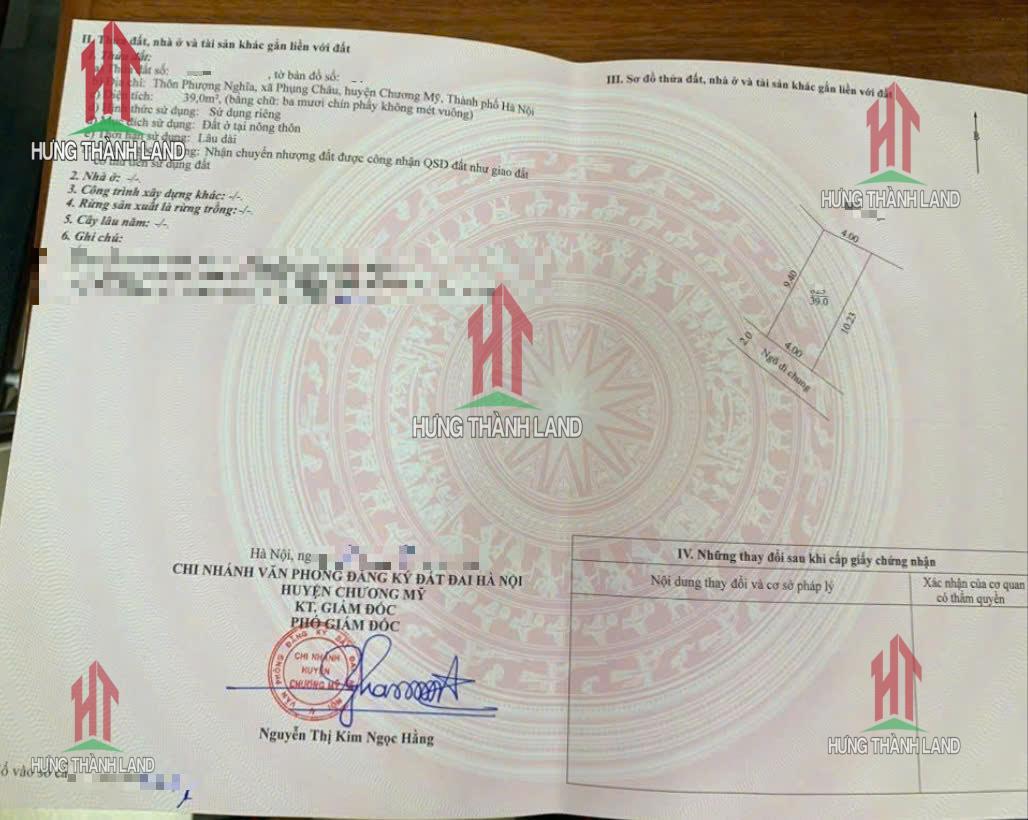 II. Thửa đất, nhà ở và tài sản khác gắn liền với đất
1. Thửa đất:
Thửa đất số: , tờ bản đồ số:
Địa chỉ: Thôn Phượng Nghĩa, xã Phụng Châu, huyện Chương Mỹ, Thành phố Hà Nội
Diện tích: 39,0m², (bằng chữ: ba mươi chín phẩy không mét vuông)
Hình thức sử dụng: Sử dụng riêng
Mục đích sử dụng: Đất ở tại nông thôn
Thời hạn sử dụng: Lâu dài
Nhận chuyển nhượng đất được công nhận QSD đất như giao đất
có thu tiền sử dụng đất
2. Nhà ở: -/-.
3. Công trình xây dựng khác: -/-.
4. Rừng sản xuất là rừng trồng: -/-.
5. Cây lâu năm: -/-.
6. Ghi chú:
III. Sơ đồ thửa đất, nhà ở và tài sản khác gắn liền với đất
B
4.00
9.40
39.0
10.23
2.0
4.00
Ngõ đi chung
Hà Nội, ng
CHI NHÁNH VĂN PHÒNG ĐĂNG KÝ ĐẤT ĐAI HÀ NỘI
HUYỆN CHƯƠNG MỸ
KT. GIÁM ĐỐC
PHÓ GIÁM ĐỐC
CHI NHÁNH
HUYỆN
CHƯƠNG MỸ
Nguyễn Thị Kim Ngọc Hằng
IV. Những thay đổi sau khi cấp giấy chứng nhận
Nội dung thay đổi và cơ sở pháp lý
Xác nhận của cơ quan
có thẩm quyền
HT
HƯNG THÀNH LAND
HT
HƯNG THÀNH LAND
HT
HƯNG THÀNH LAND
HT
HƯNG THÀNH LAND
HT
HƯNG THÀNH LAND